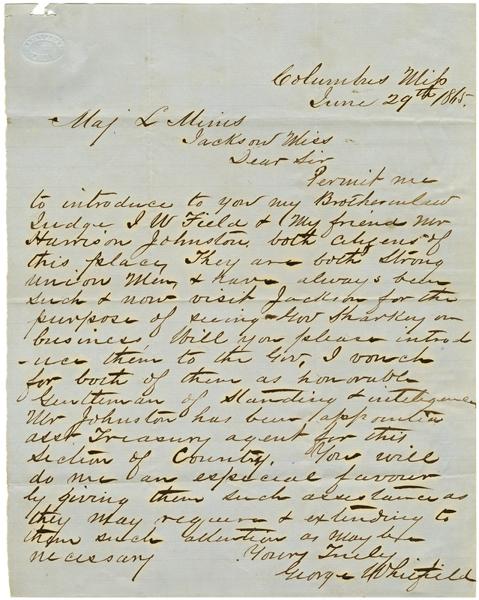 Columbus Miss
June 29th 1865.
Maj L Mims
Jackson Miss
Dear Sir
Permit me
to introduce to you my Brotherinlaw
Judge J W Field & My friend Mr
Harrison Johnston, both citizens of
this place, They are both strong
union Men, & have always been
such & now visit Jackson for the
purpose of seeing Gov Sharkey on
business, Will you please introd
-uce them to the Gov, I vouch
for both of them as honorable
Gentleman of Standing & inteligence
Mr Johnston has been appointed
asst Treasury agent for this
Section of Country. You will
do me an especial favour
by giving them such assistance as
they may requere & extending to
them such attention as may be
necessary Yours Truly
George Whitfield